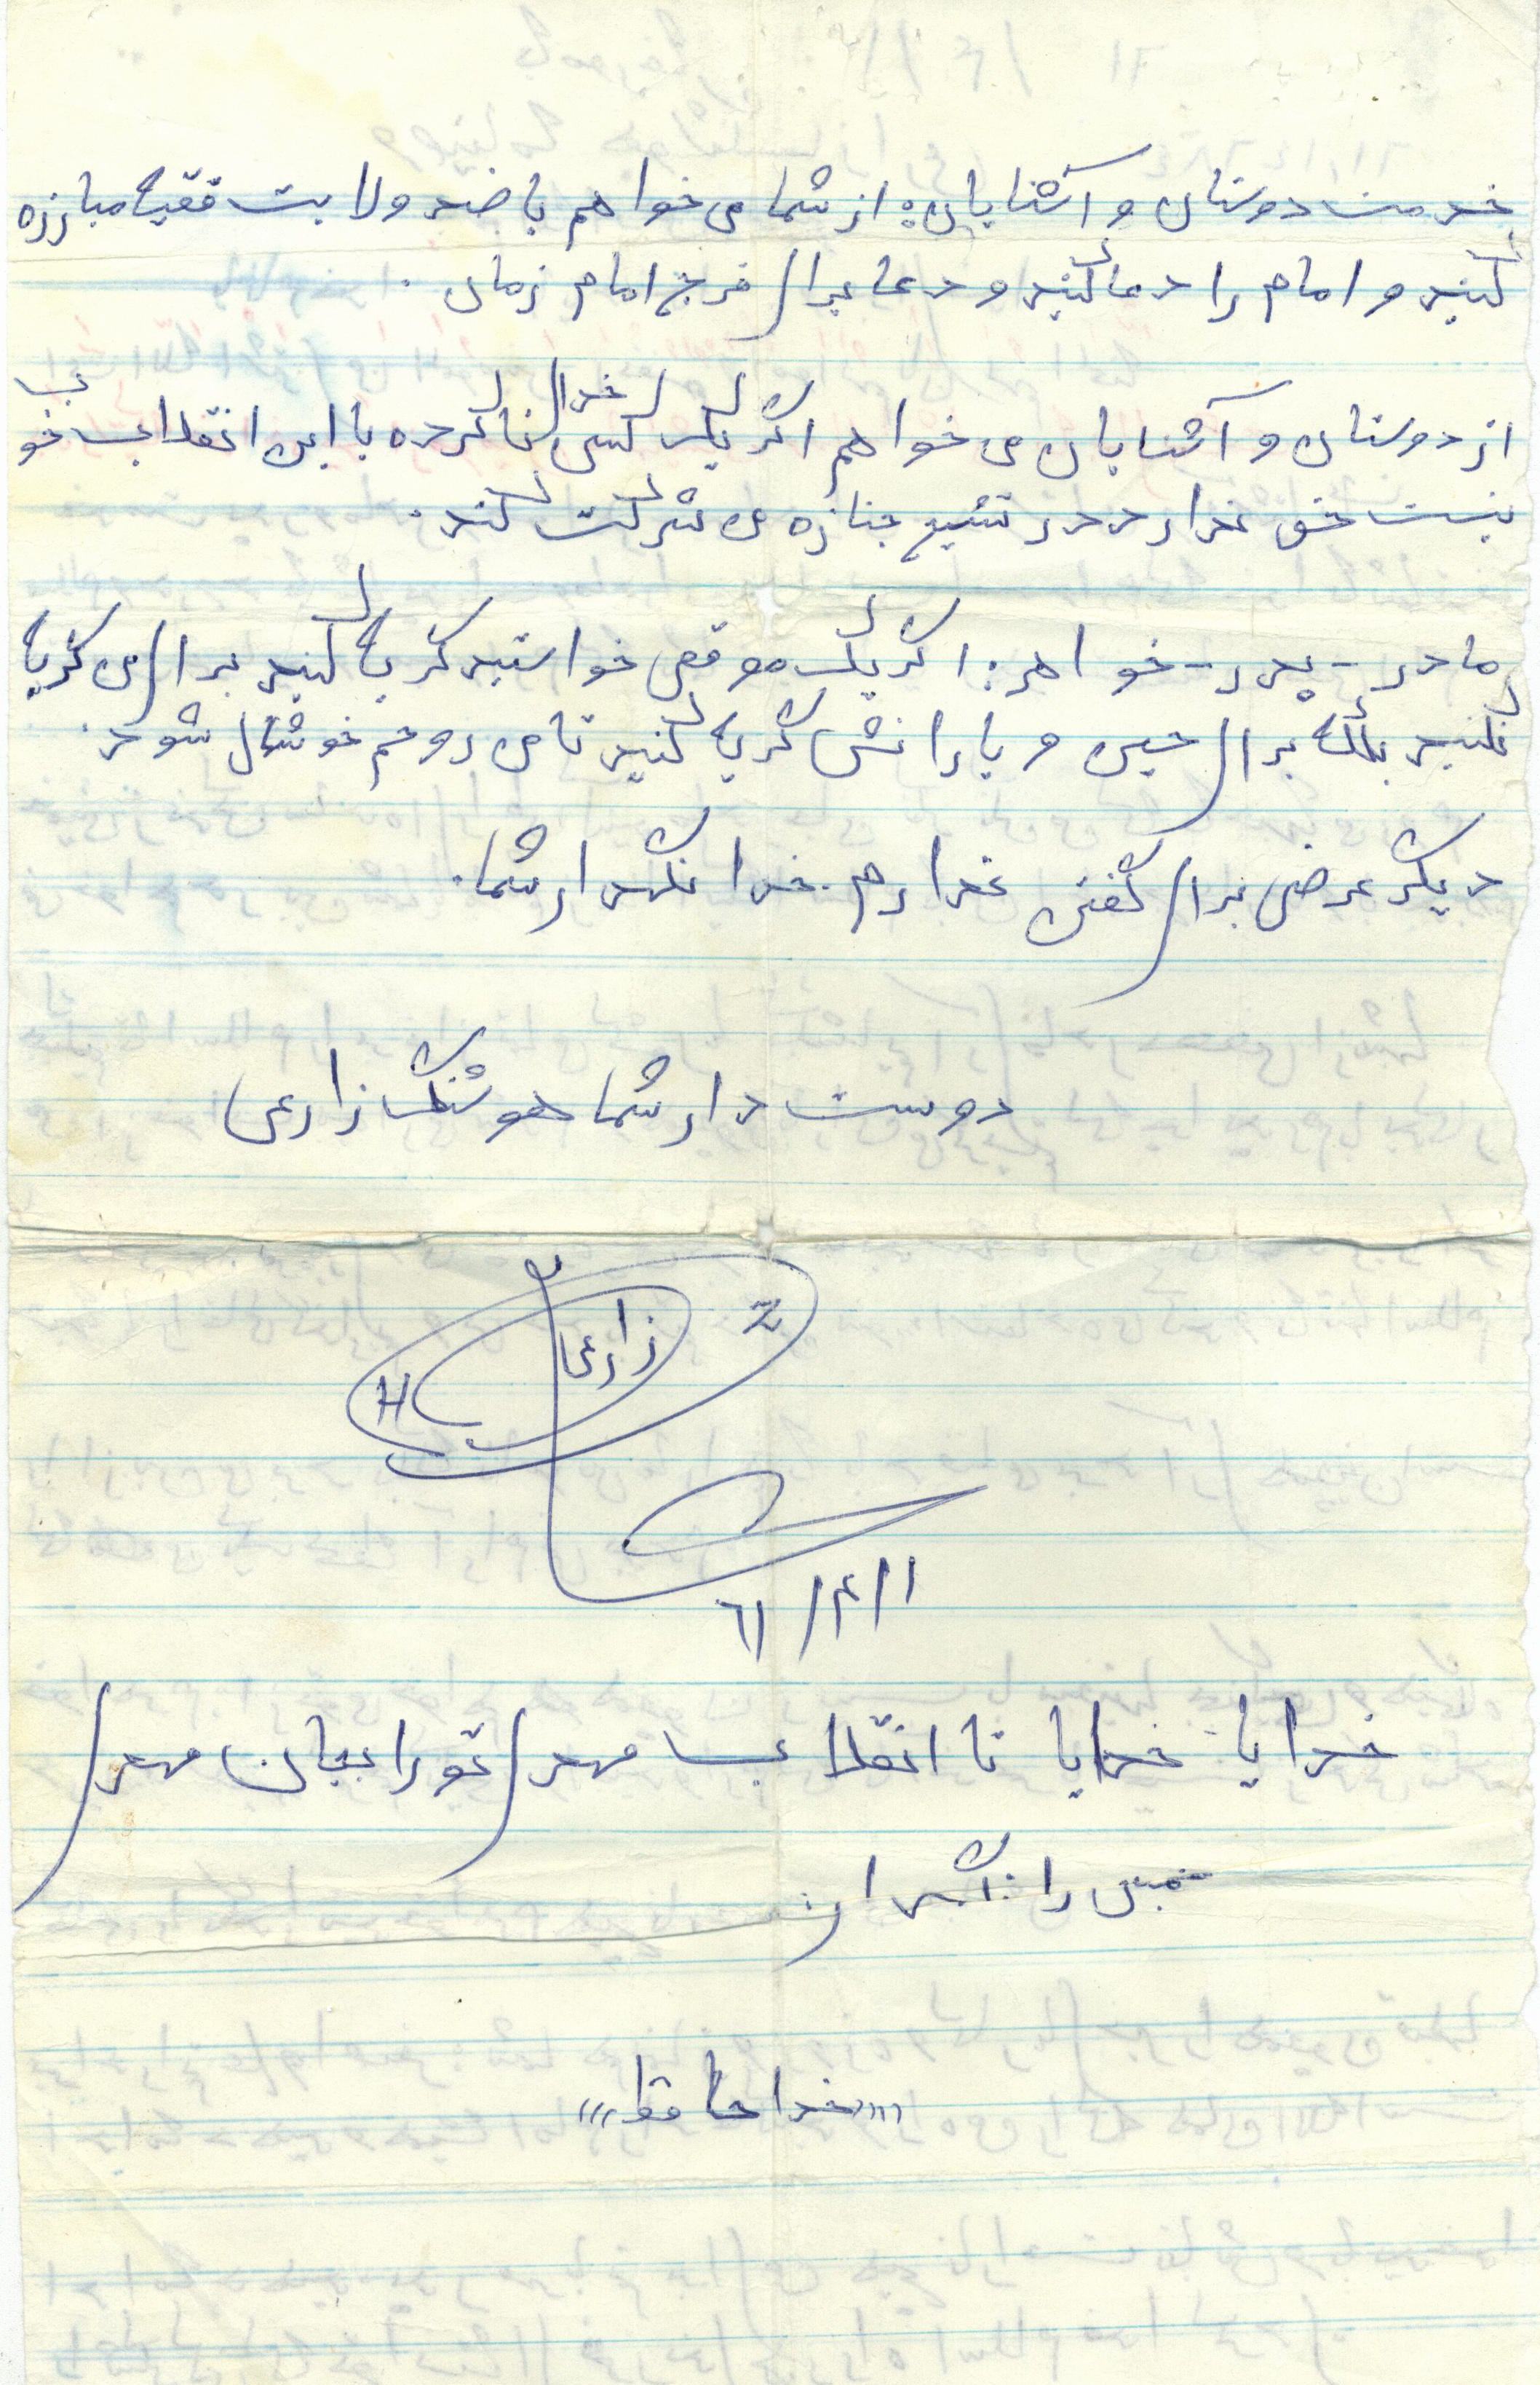 خدمت دوستان و آشنایان: از شما می خواهم با ضد ولایت فقیه مبارزه
کنید و امام را دعا کنید و دعا برای فرج امام زمان.
از دوستان و آشنایان می خواهم اگر یک کسی خدای ناکرده با این انقلاب خوب
نیست حق ندارد در تشیع جنازه من شرکت کند.
مادر - پدر - خواهر: اگر یک موقعی خواستید گریه کنید برای من گریه
نکنید بلکه برای حسین و یارانش گریه کنید تا من روحم خوشحال شود.
دیگر عرضی برای گفتن ندارم. خدا نگهدار شما.
دوست دار شما هوشنگ زارعی
زارعی
Z
H
۶۱/۴/۱
خدایا خدایا تا انقلاب مهدی تو را بجان مهدی
خمینی را نگهدار
«خدا حافظ»